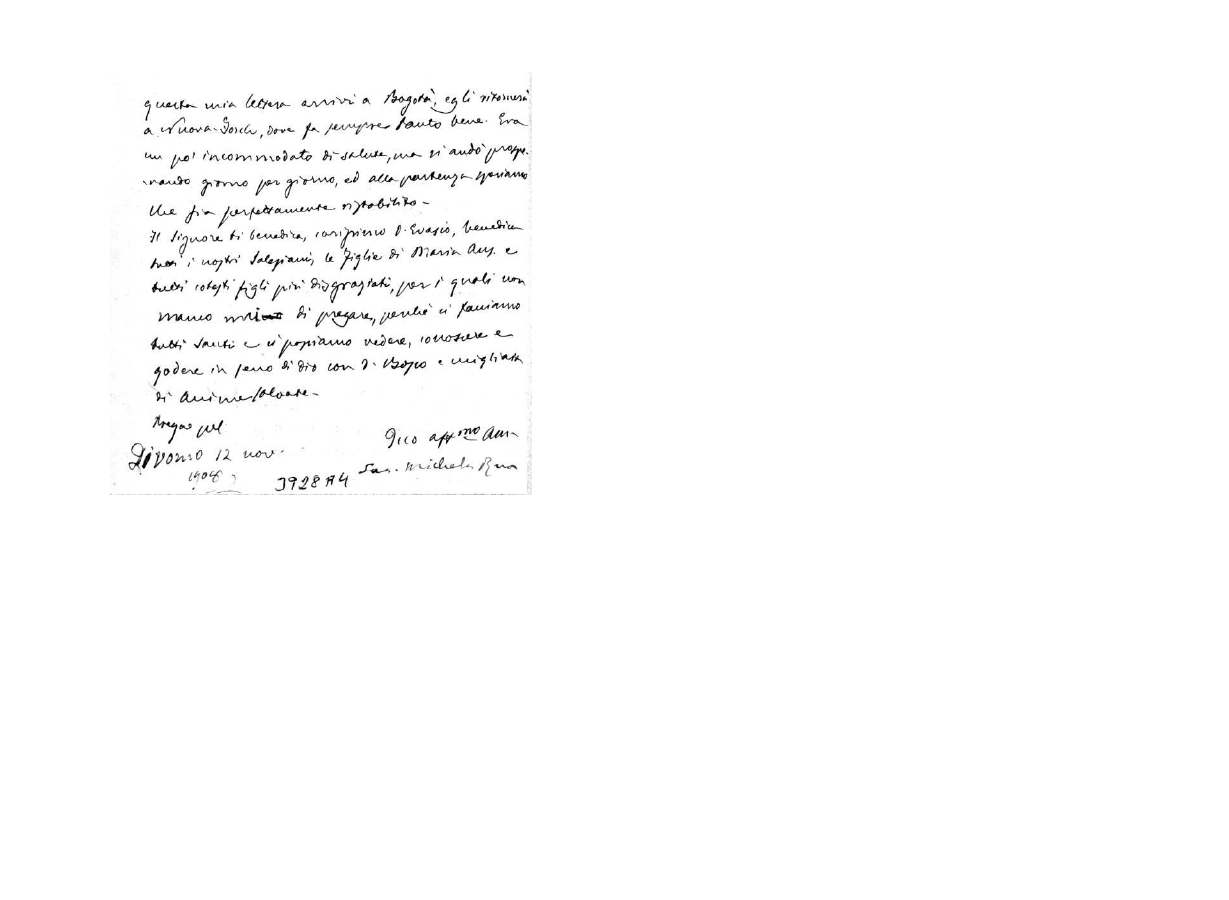 questa mia lettera arrivi a Bogotà, egli ritornerà
a Nuova-York, dove fa sempre tanto bene. Era
un po' incommodato di salute, ma si andò
giorno per giorno, ed alla partenza speriamo
che sia perfettamente ristabilito -
Il Signore ti benedica, carissimo D. Evasio, benedica
tutti i nostri Salesiani, le Figlie di Maria Aus. e
tutti cotesti figli più disgraziati, per i quali non
manco di pregare, perché ci facciamo
tutti santi e ci possiamo vedere, conoscere e
godere in seno di Dio con D. Bosco e migliaia
di anime salvate -
Pregae pel
Livorno 12 nov.
Tuo aff.mo Am.
1908
3928A4
Sac. Michele Rua